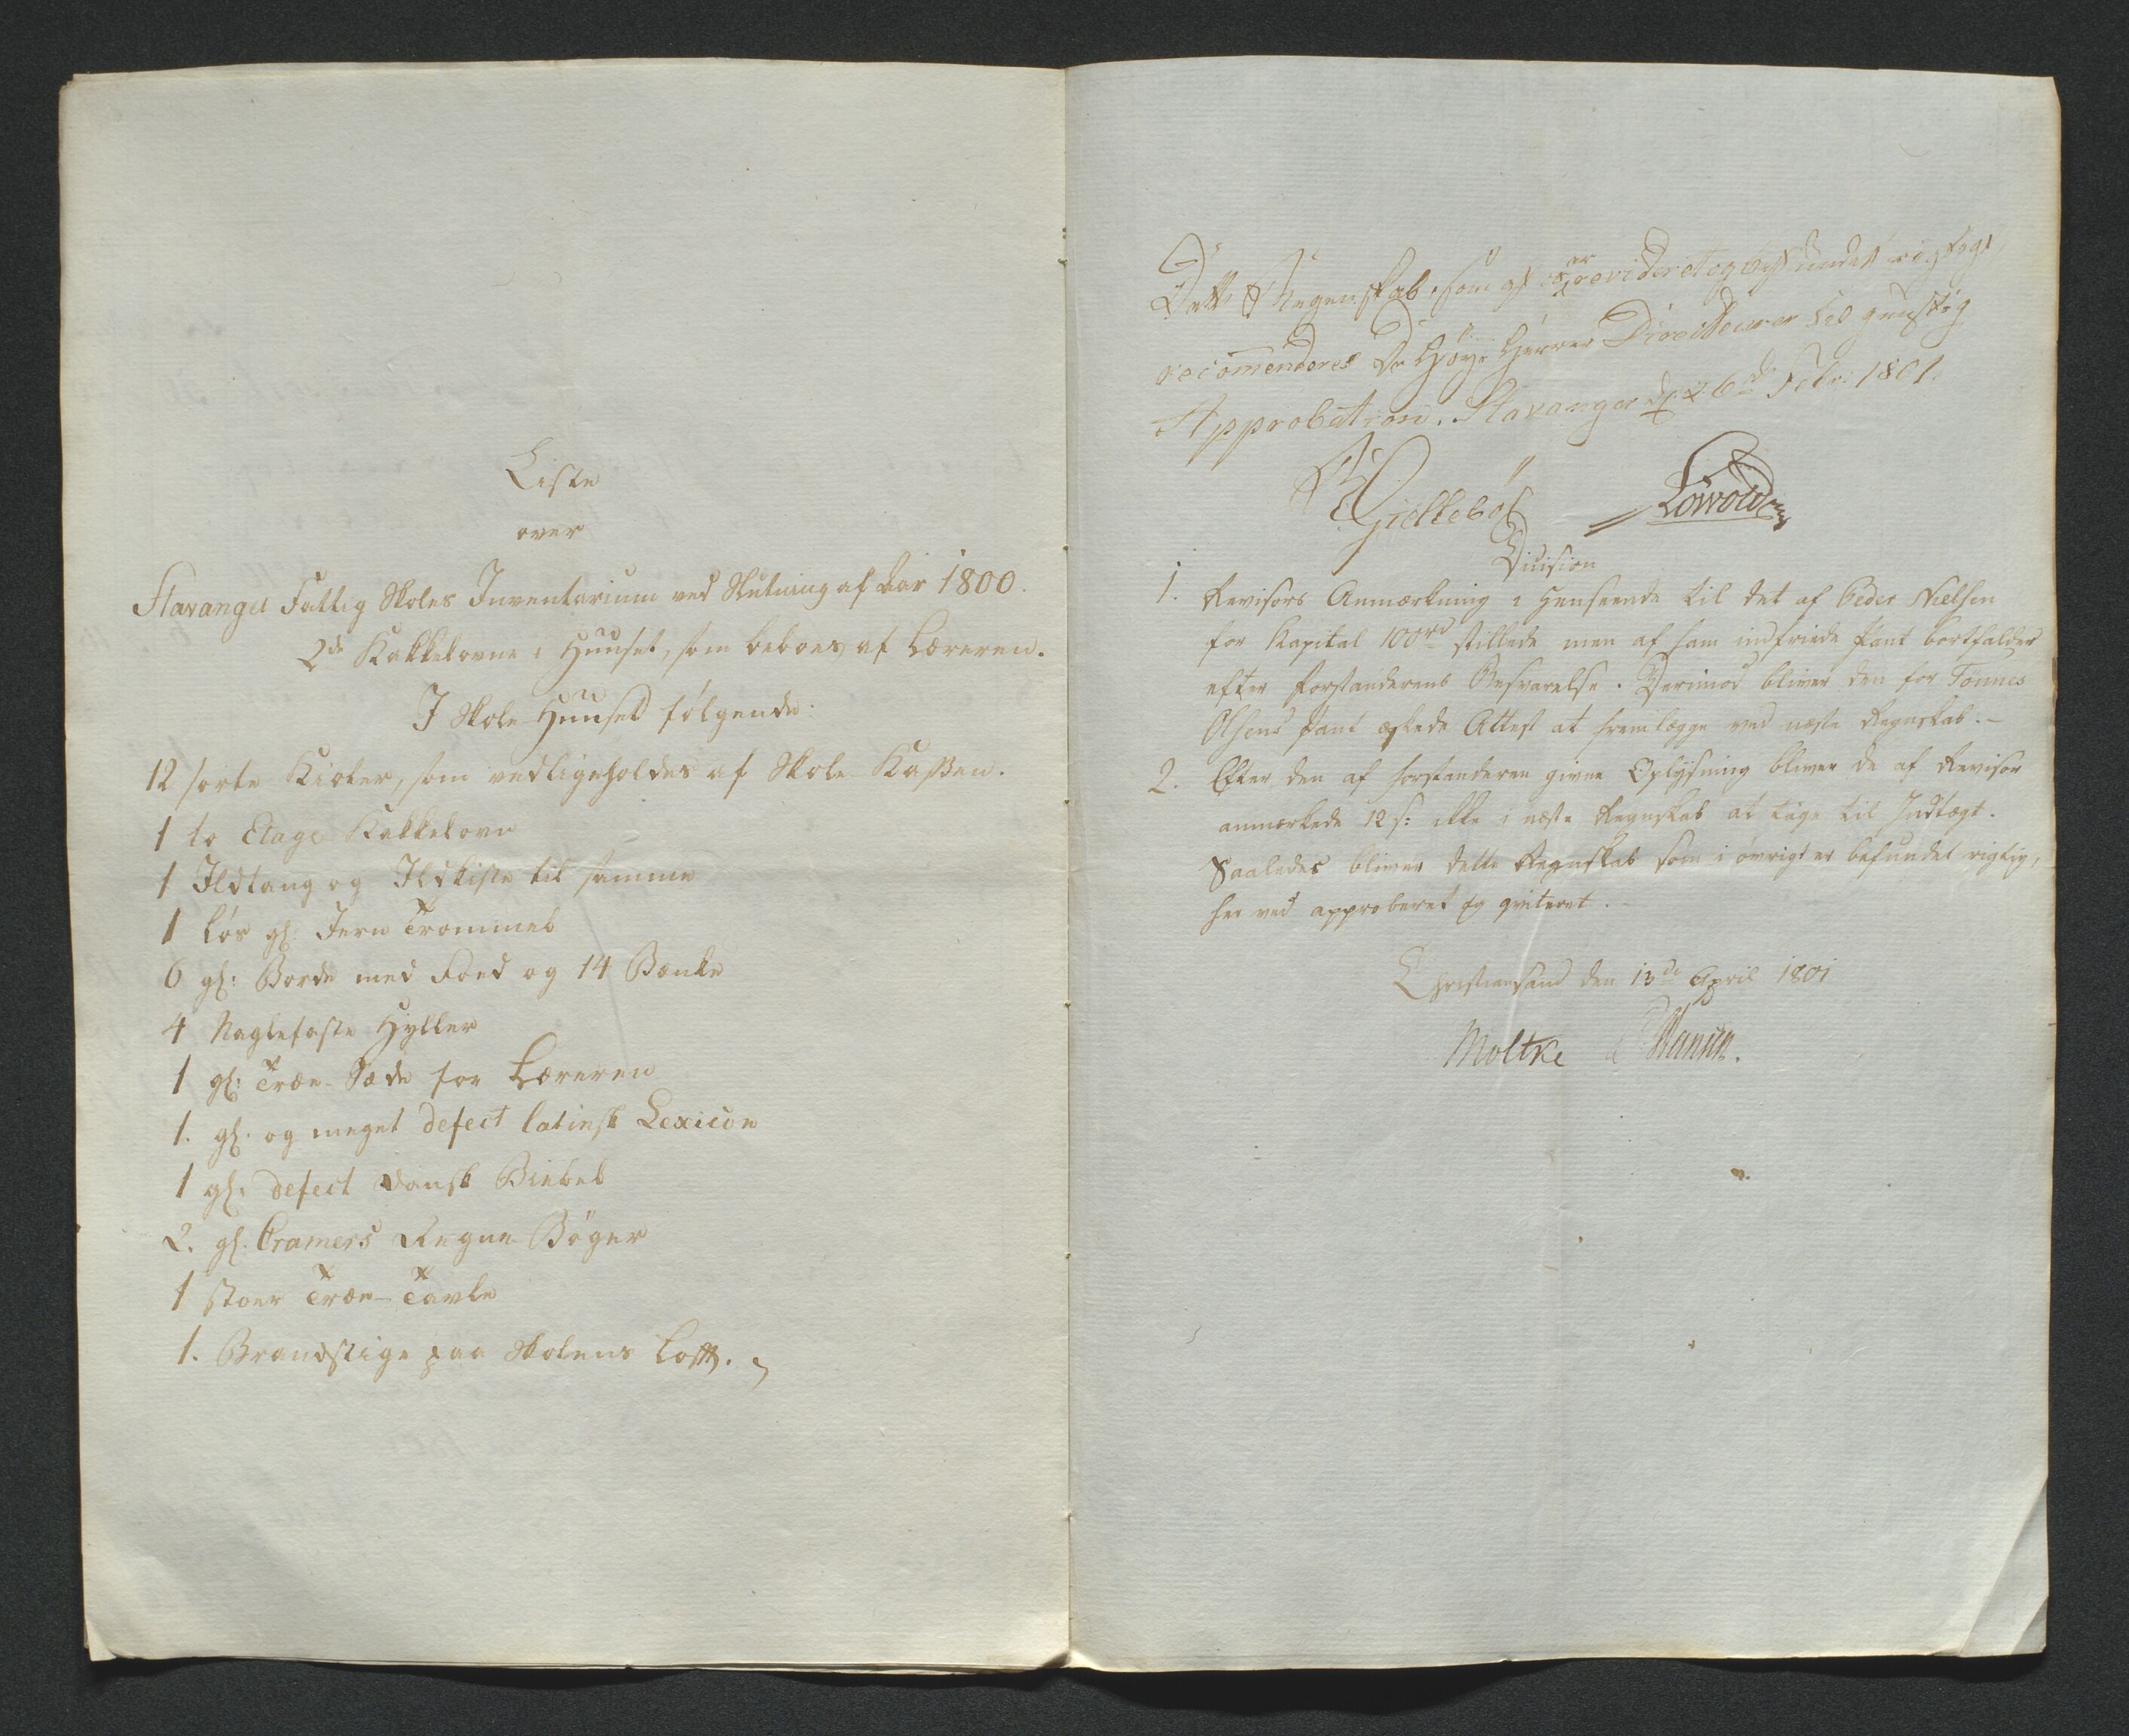 Liste
over
Stavanger Fattig Skoles Inventarium ved Slutning af Aar 1800.
2de Kakkelovne i Huuset, som beboes af Læreren.
I Skole-Huuset følgende:
12 sorte Kioler, som vedligeholdes af Skole-Kassen.
1 to Etage Kakkelovn
1 Ildtang og Ildkiste til samme
1 løs gl: Jern Trommel
6 gl: Borde med Foed og 14 Bænke
4 Naglefaste Hyller
1 gl: Træe-Sæde for Læreren
1. gl: og meget defect latinsk Lexicon
1 gl: defect dansk Biebel
2. gl. Cramers Regne Bøger
1 stoer Træe-Tavle
1. Brandstige paa Skolens Loft.
Dette Regenskab, som er revideret og befundet rigtigt,
recom̄enderes De Høye Herrer Directeurer til gunstig
Approbation. Stavanger d. 6de Febr: 1801.
Gieltebøl Løwold
Division
1. Revisors Anmærkning i Henseende til det af Peder Nielsen
for Kapital 100 rd stillede men af ham indfriede Pant bortfalder
efter Forstanderens Besvarelse. Derimod bliver den for Tönnes
Olsens Pant æskede Attest at fremlægge ved næste Regnskab. -
2. Efter den af Forstanderen givne Oplysning bliver de af Revisor
anmærkede 12 s: ikke i næste Regnskab at tage til Indtægt.
Saaledes bliver dette Regnskab som i øvrigt er befundet rigtig,
her ved approberet og qviteret. -
Christiansand den 13de April 1801
Moltke Hansen.